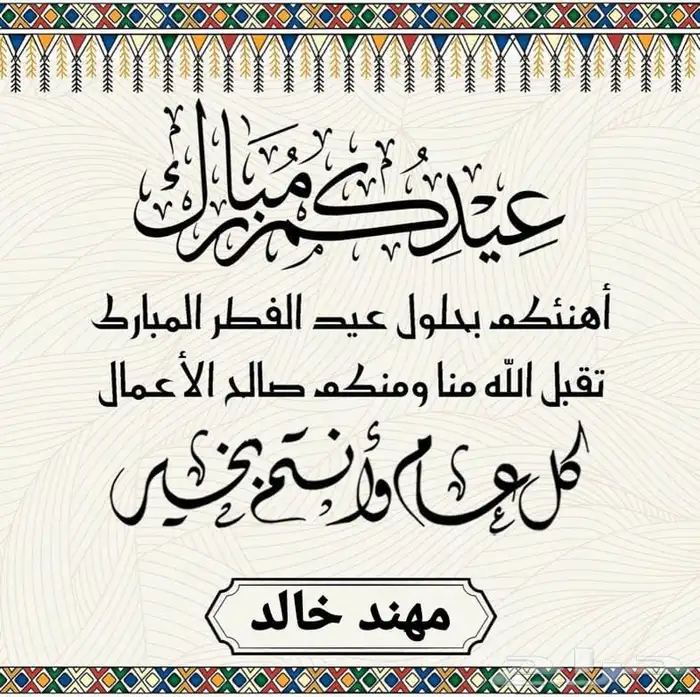 عِيْدِكُم مُبَارك
أهنئكم بحلول عيد الفطر المبارك
تقبل الله منا ومنكم صالح الأعمال
كل عام وأنتم بخير
مهند خالد